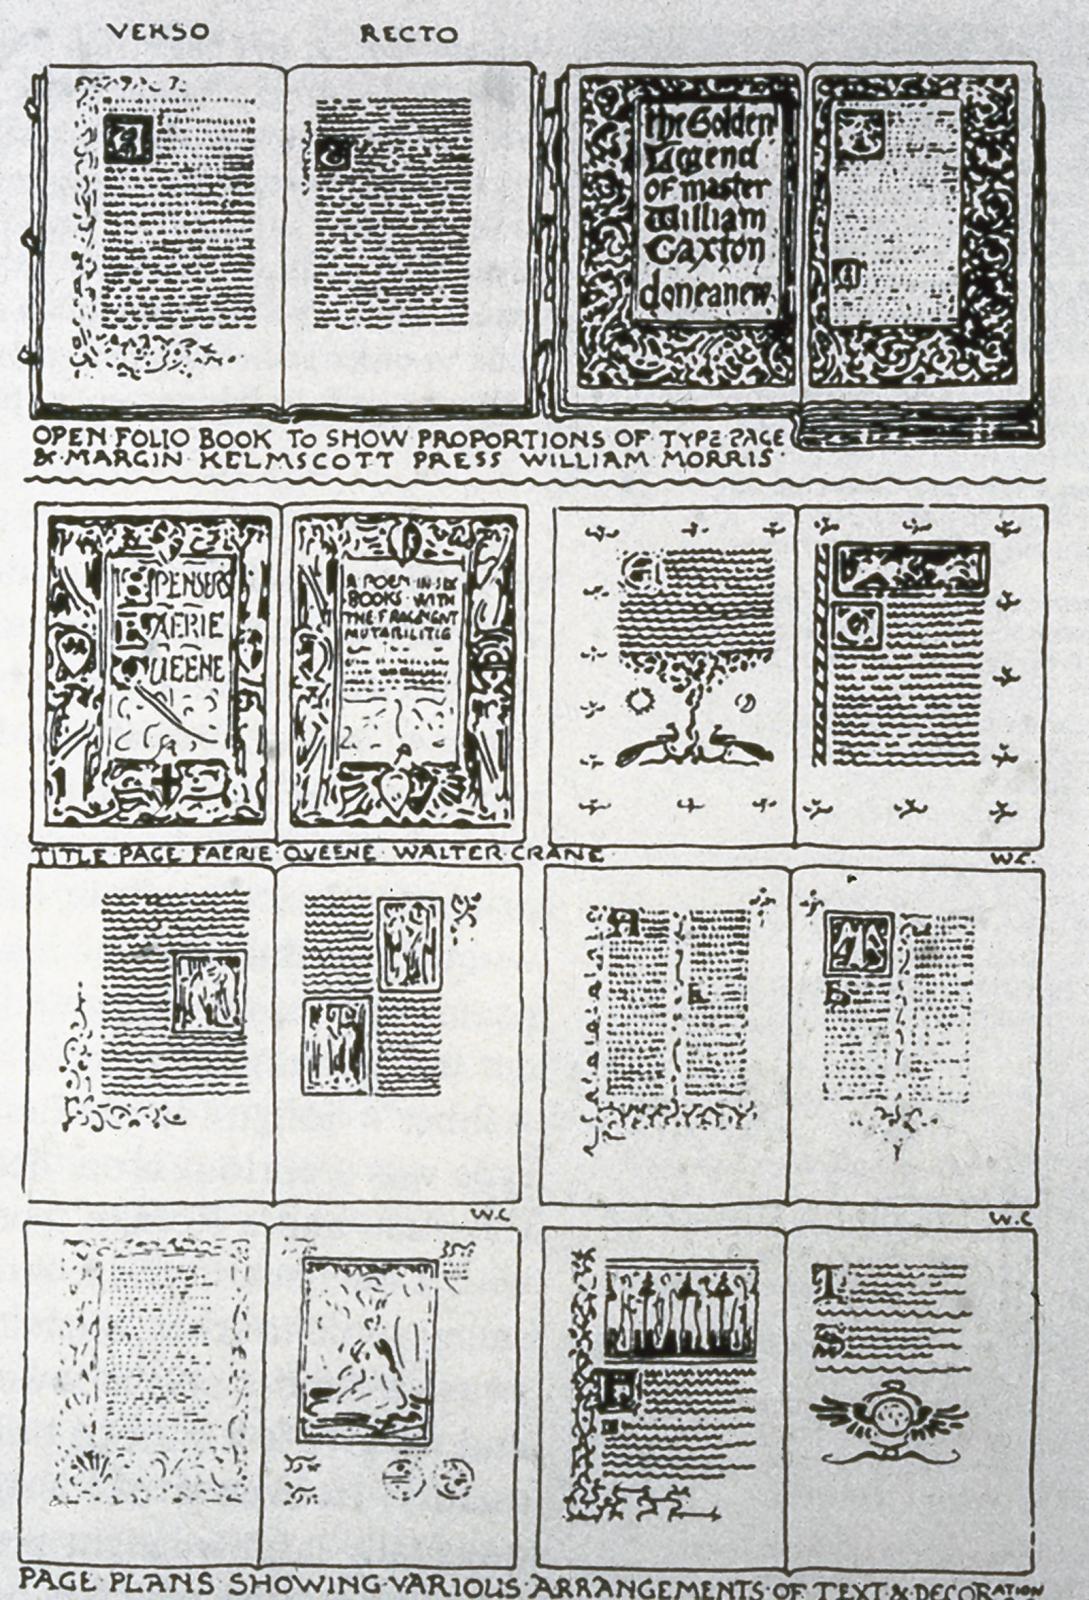 VERSO RECTO
The Golden
Legend
of master
William
Caxton
done anew.
OPEN FOLIO BOOK TO SHOW PROPORTIONS OF TYPE PAGE
& MARGIN KELMSCOTT PRESS WILLIAM MORRIS
SPENSERS
FAERIE
QUEENE
A POEM IN SIX
BOOKS WITH
THE FRAGMENT
MUTABILITIE
TITLE PAGE FAERIE QUEENE WALTER CRANE
W.C.
W.C
W.C
PAGE PLANS SHOWING VARIOUS ARRANGEMENTS OF TEXT & DECORATION